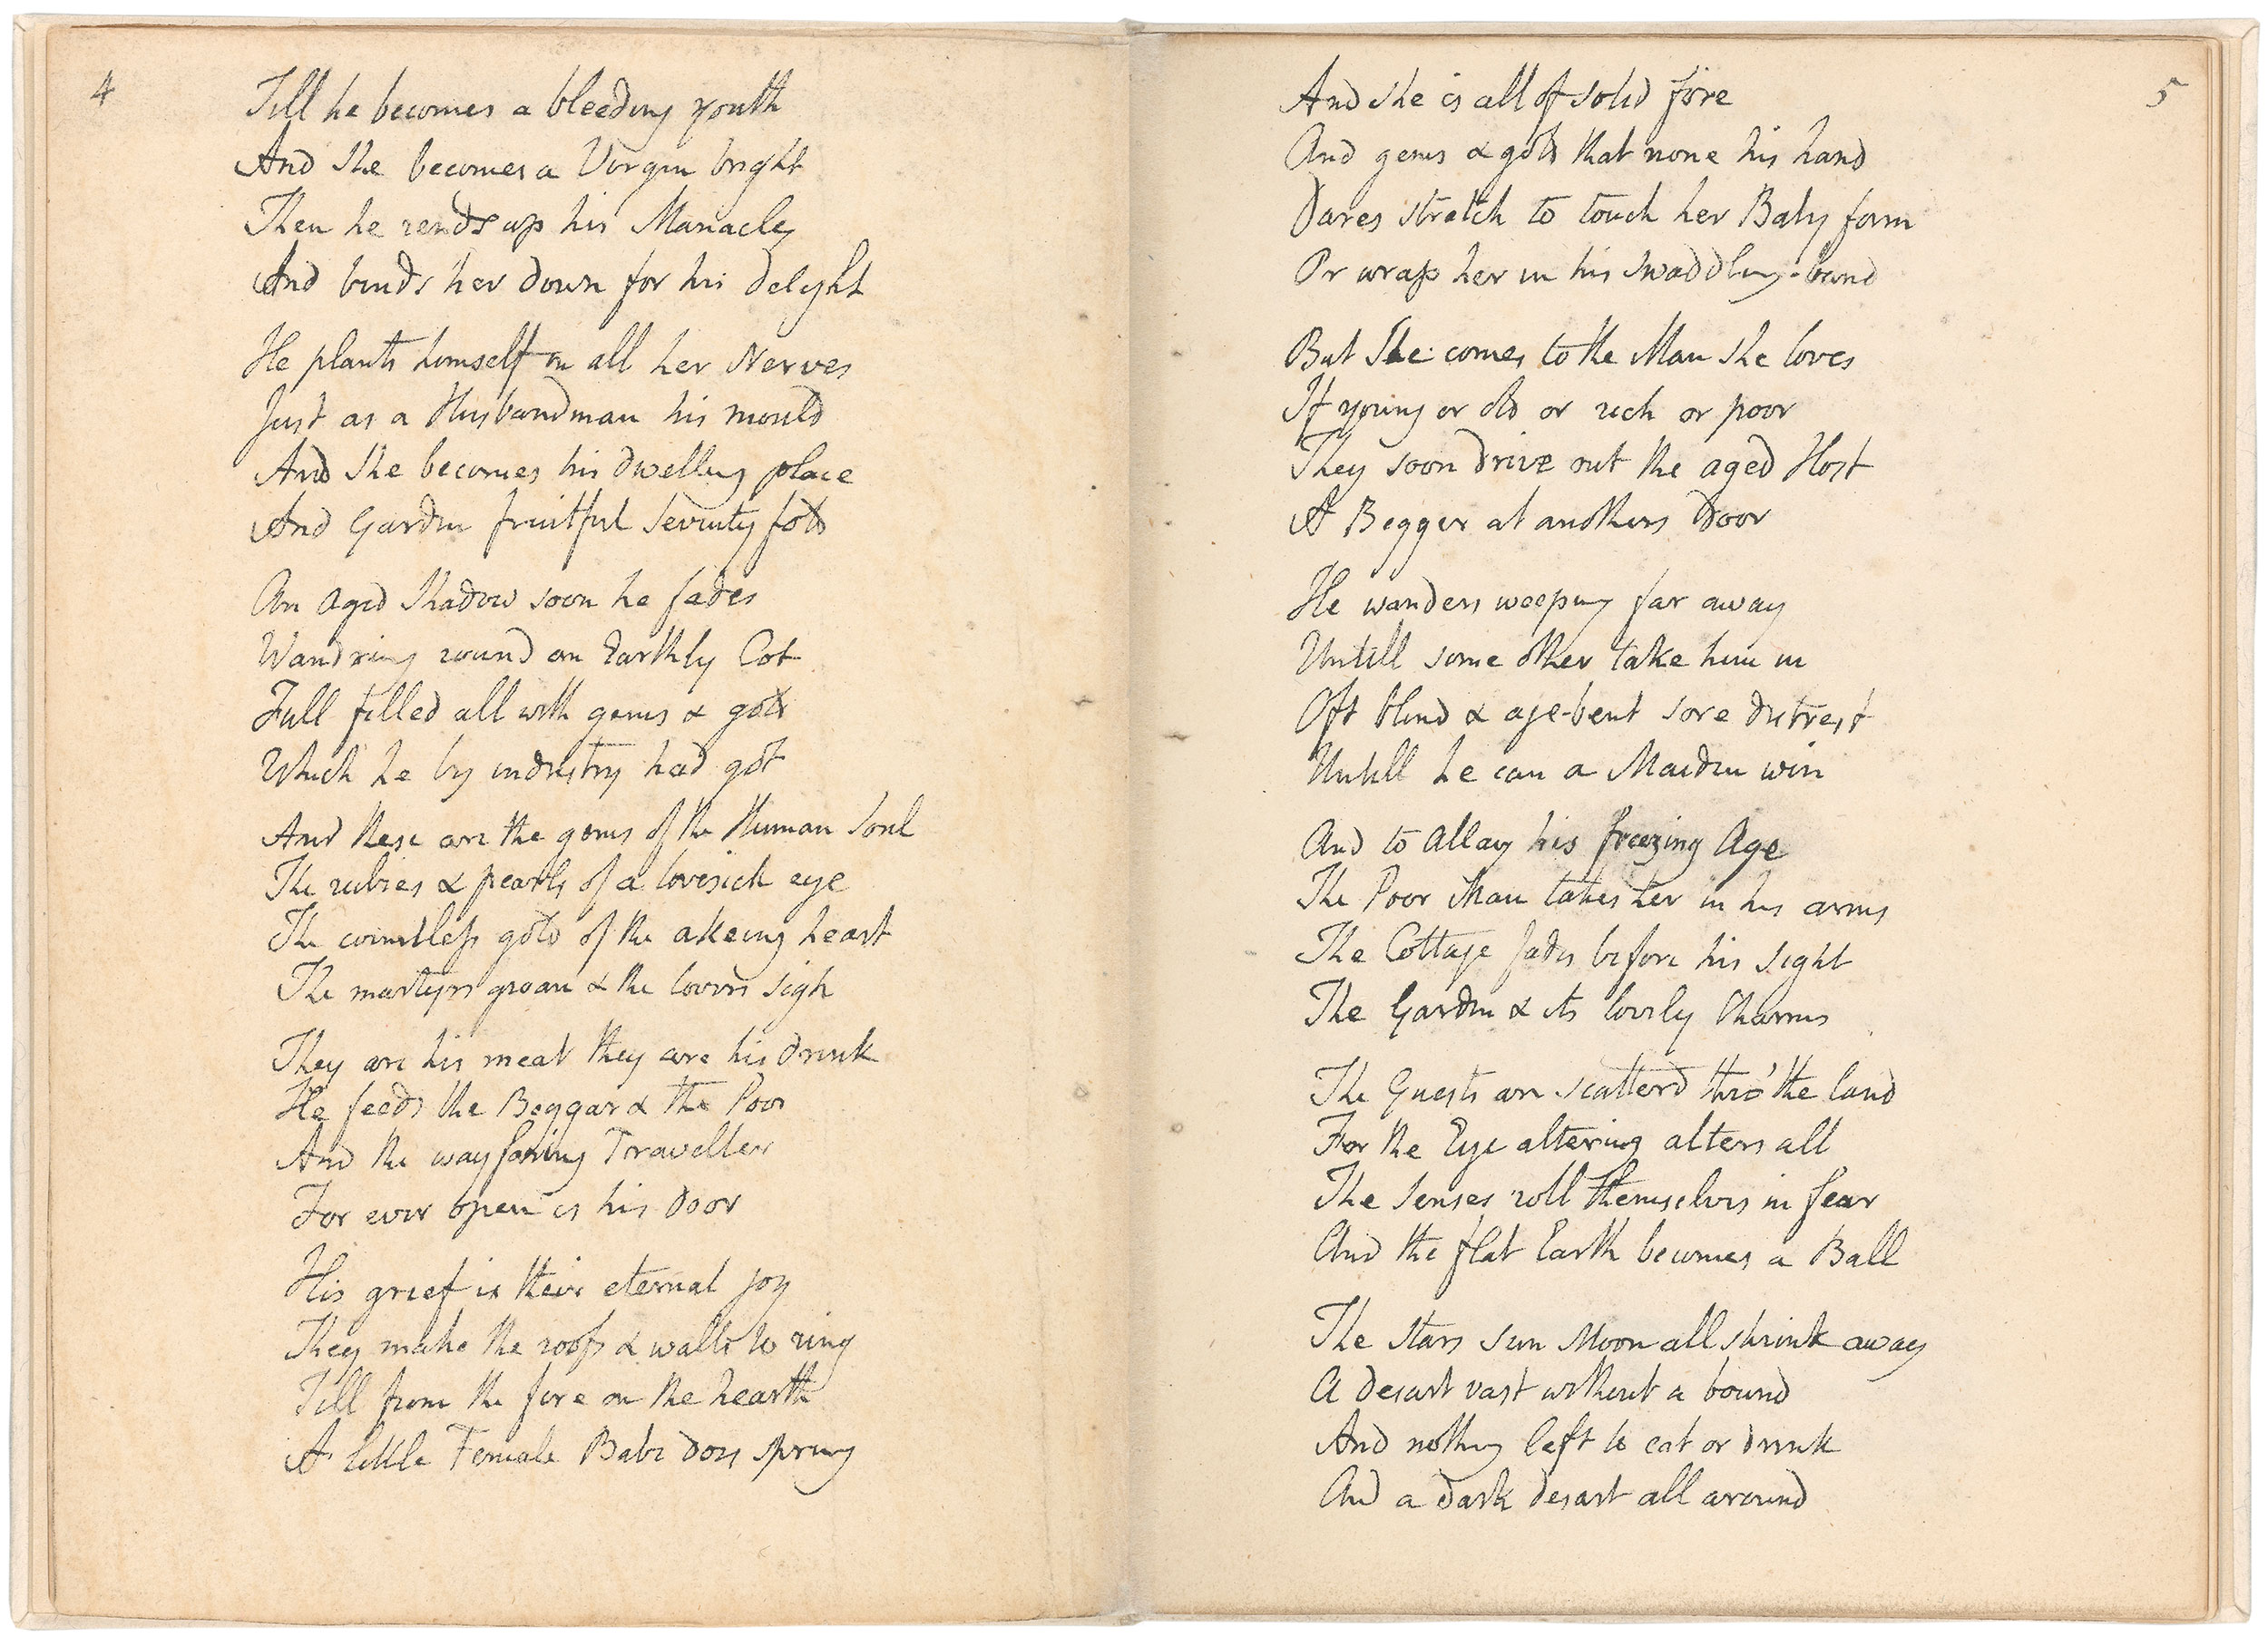 4
Till he becomes a bleeding youth
And she becomes a Virgin bright
Then he rends up his Manacles
And binds her down for his delight
He plants himself in all her Nerves
Just as a Husbandman his mould
And She becomes his dwelling place
And Garden fruitful Seventy fold
An aged Shadow soon he fades
Wandring round an Earthly Cot
Full filled all with gems & gold
Which he by industry had got
And these are the gems of the Human Soul
The rubies & pearls of a lovesick eye
The countless gold of the akeing heart
The martyrs groan & the lovers sigh
They are his meat they are his drink
He feeds the Beggar & the Poor
And the wayfaring Traveller
For ever open is his door
His grief is their eternal joy
They make the roofs & walls to ring
Till from the fire on the hearth
A little Female Babe does spring
5
And she is all of solid fire
And gems & gold that none his hand
Dares stretch to touch her Baby form
Or wrap her in his swaddling-band
But She comes to the Man she loves
If young or old or rich or poor
They soon drive out the aged Host
A Begger at anothers door
He wanders weeping far away
Untill some other take him in
Oft blind & age-bent sore distrest
Untill he can a Maiden win
And to Allay his freezing Age
The Poor Man takes her in his arms
The Cottage fades before his Sight
The Garden & its lovely Charms
The Guests are scatterd thro' the land
For the Eye altering alters all
The Senses roll themselves in fear
And the flat Earth becomes a Ball
The Stars Sun Moon all shrink away
A desart vast without a bound
And nothing left to eat or drink
And a dark desart all around